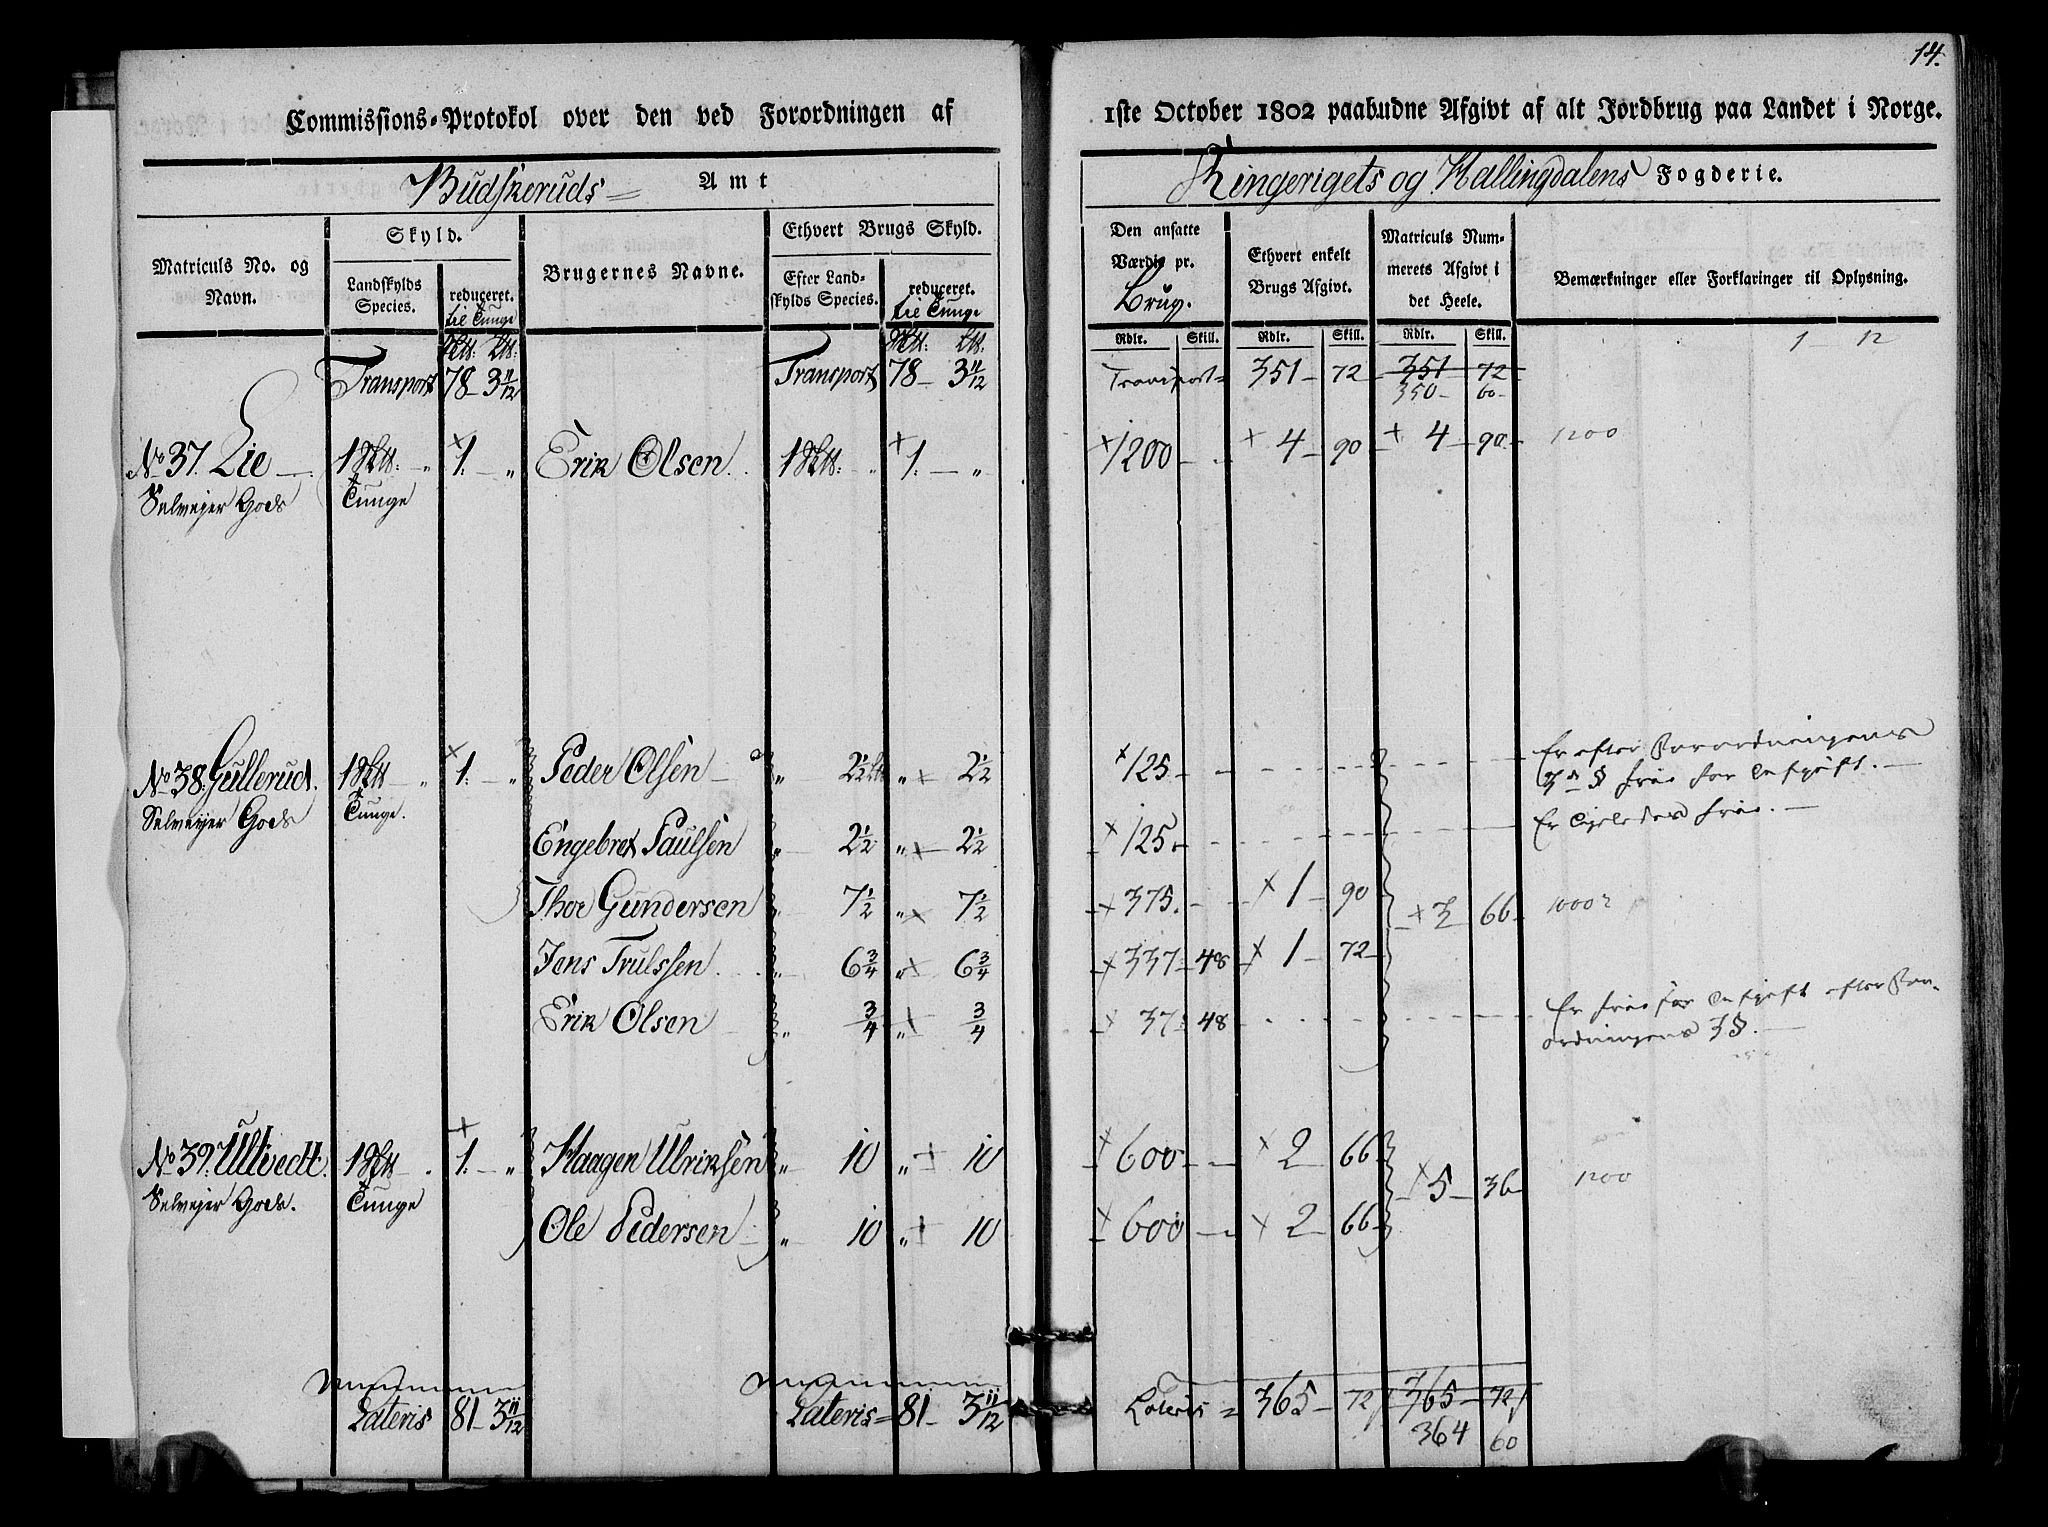 14.
Commissions-Protokol over den ved Forordningen af 1ste October 1802 paabudne Afgivt af alt Jordbrug paa Landet i Norge.
Budskeruds Amt Ringerigets og Hallingdalens Fogderie.
Matriculs No. og Navn.
Skyld.
Landskylds Species.
reduceret. til Tunge
Brugernes Navne.
Ethvert Brugs Skyld.
Efter Landskylds Species.
reduceret. til Tunge
Den ansatte Værdie pr. Brug.
Ethvert enkelt Brugs Afgivt.
Matriculs Nummerets Afgivt i det Heele.
Bemærkninger eller Forklaringer til Oplysning.
Rdlr. Skill. Rdlr. Skill. Rdlr. Skill.
1 12
Transport 78 - 3 11/12 Transport 78 - 3 11/12 Transport 351 - 72 - 351 72
350 - 60 -
No 37. Lie 1 Sktt: " 1. - " Erik Olsen. 1 Sktt: " 1. - " 1200 - - 4 - 90 4 - 90 - 1200
Selveyer Gods Tunge
No 38. Gullerud. 1 Sktt - " 1. - " Peder Olsen - " 2 1/2 " 2 1/2 125 - - Er efter Forordningens
Selveyer Gods Tunge. 7de § frie for Afgift. -
Engebret Paulsen " 2 1/2 " 2 1/2 125 - Er ligeledes frie. -
Thor Gundersen " 7 1/2 " 7 1/2 375. - 1 - 90
3 - 66 - 1000
Jens Trulssen. " 6 3/4 " 6 3/4 337 - 48 1 - 72
Erik Olsen " 3/4 " 3/4 37 - 48 Er frie for Afgift efter For-
ordningens 7 §. -
No 39. Ultvedt. 1 Sktt . 1. - " Haagen Ulriksen " 10 " 10 600 - - 2 66
Selveyer Gods. Tunge 5 - 36 1200
Ole Pedersen " 10 " 10 600 - 2 - 66
Lateris 81 - 3 11/12 Lateris = 81 - 3 11/12 Lateris = 365 - 72 365 - 72
364 60